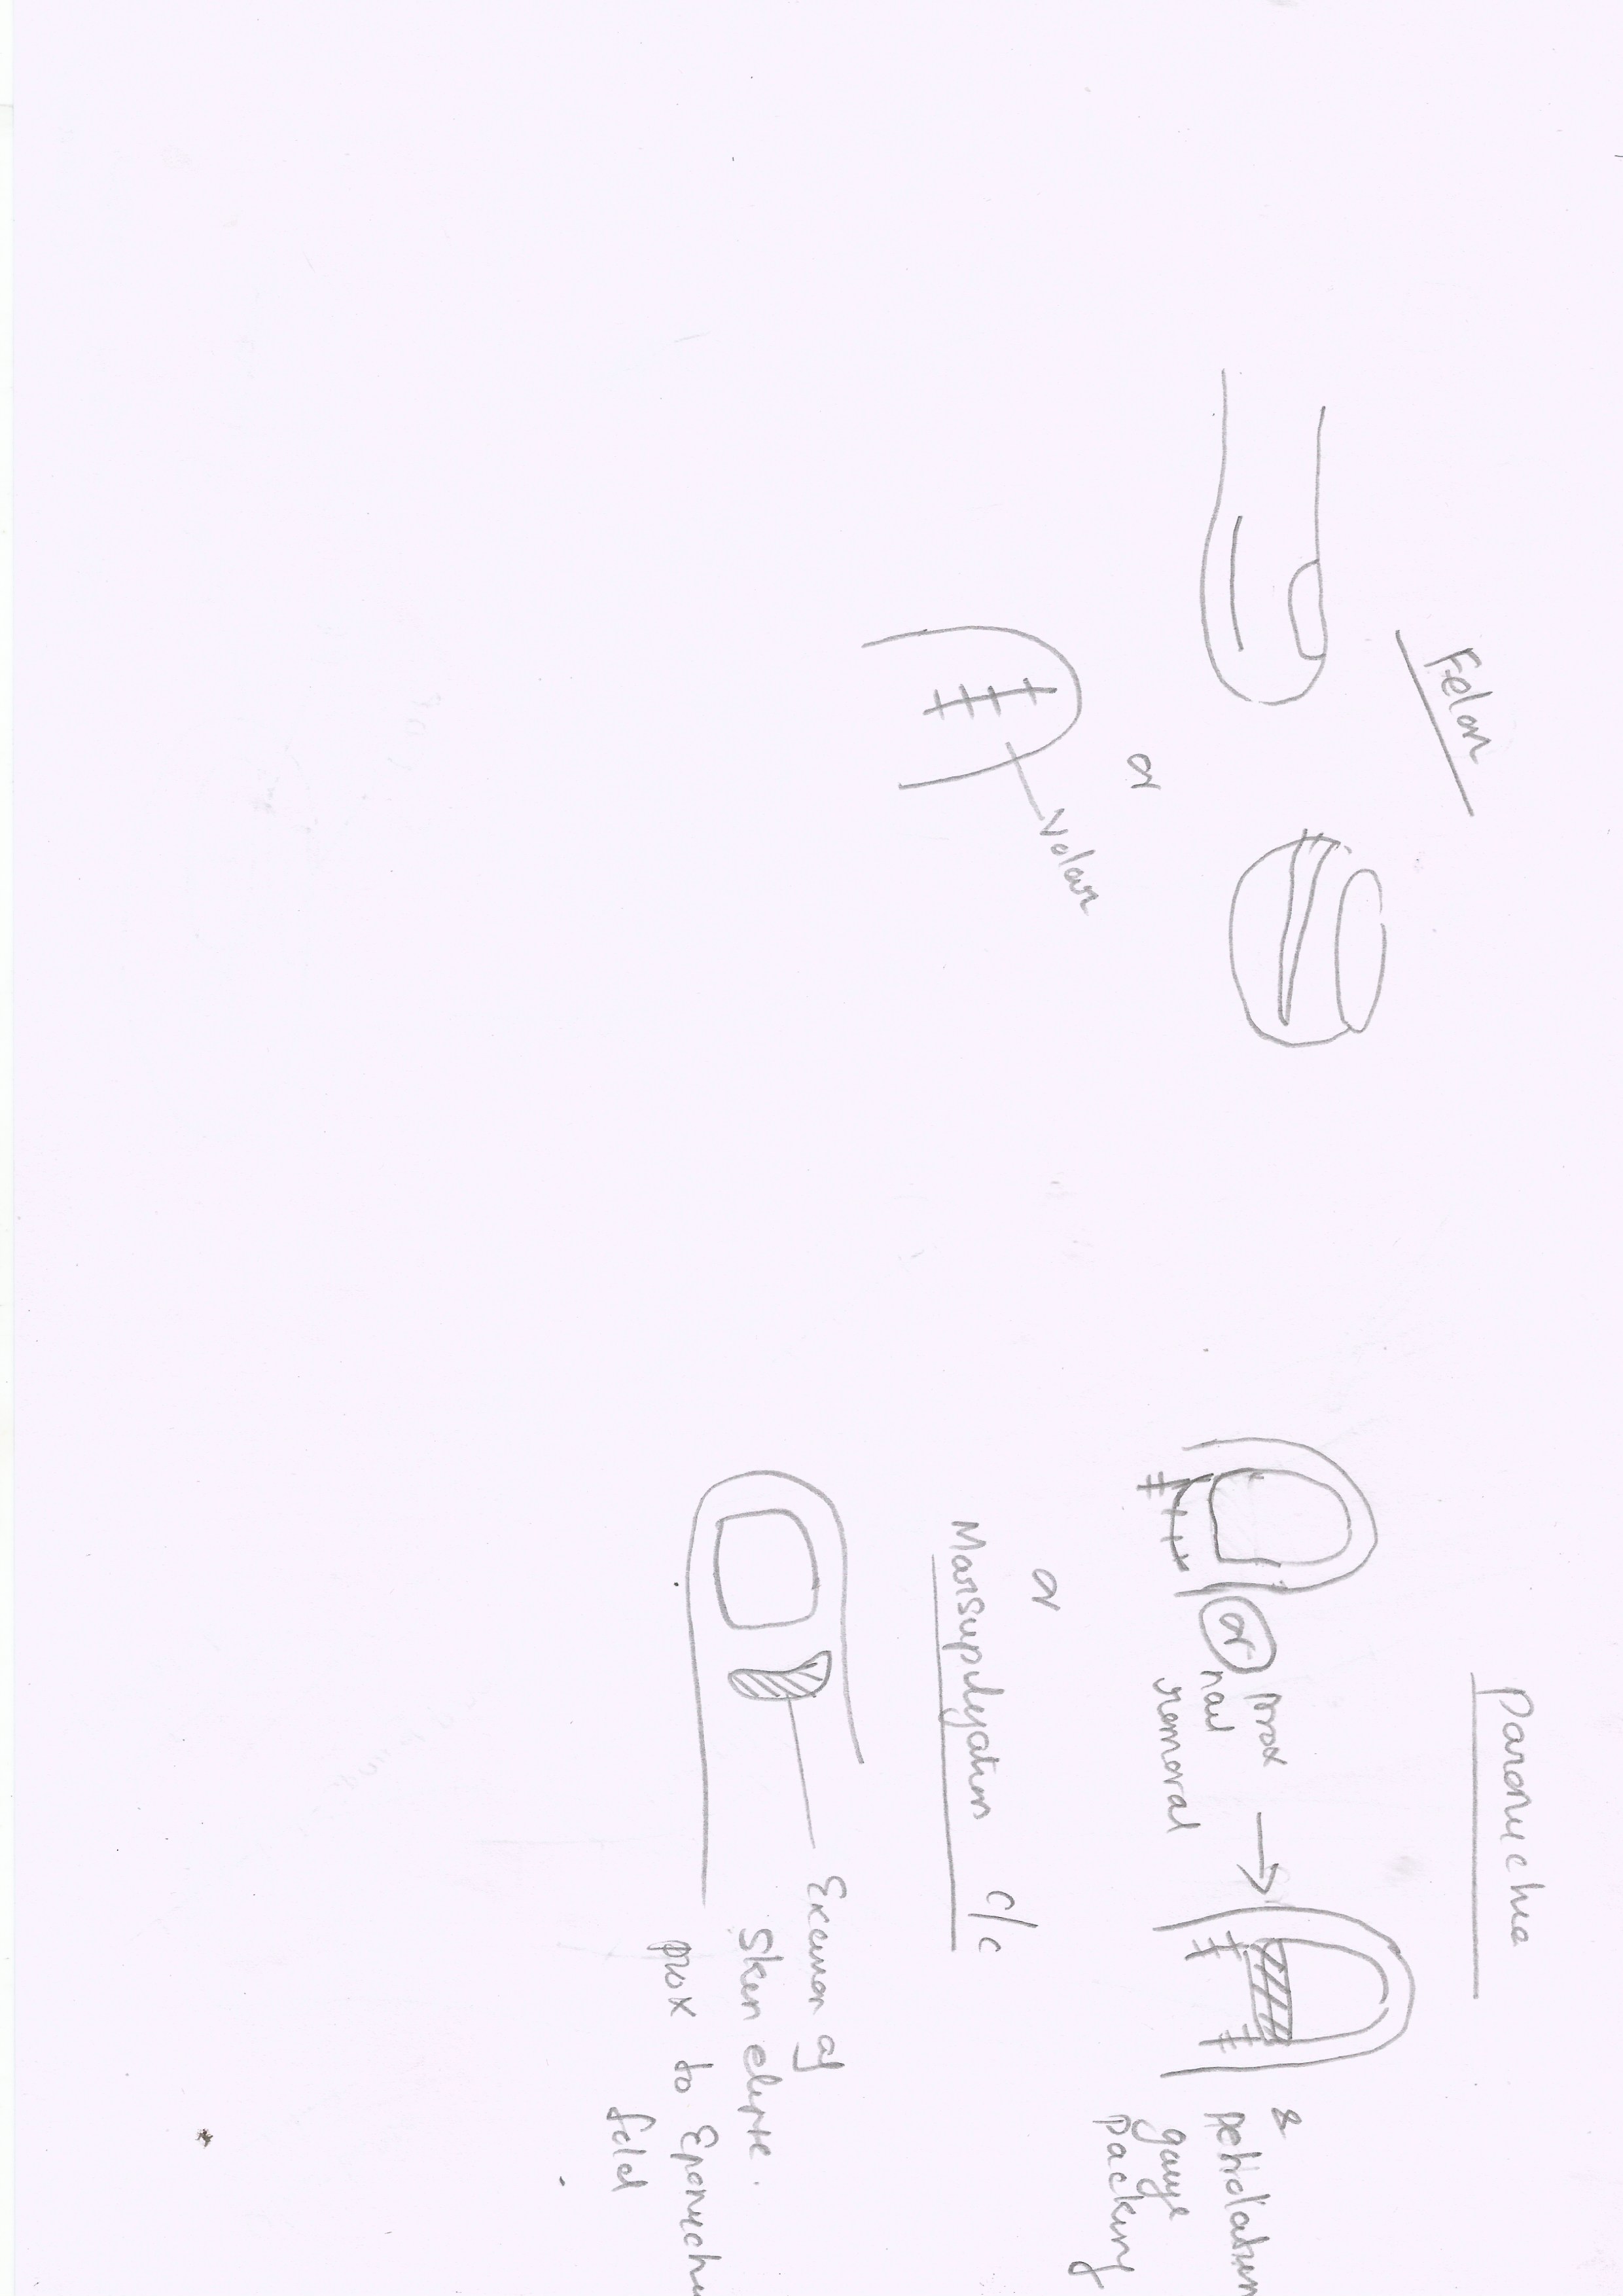 Felon
or
Volar
Paronychia
or
prox
nail
removal
&
petrolatum
gauze
packing
or
Marsupilyation c/c
Excision of
Skin elipse.
prox to Eponychi
fold